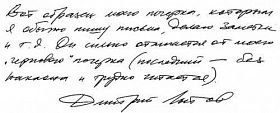 Вот образец моего почерка, которым
я обычно пишу письма, делаю заметки
и т.д. Он сильно отличается от моего
"чернового" почерка (последний — без
наклона и трудно читается)
Дмитрий